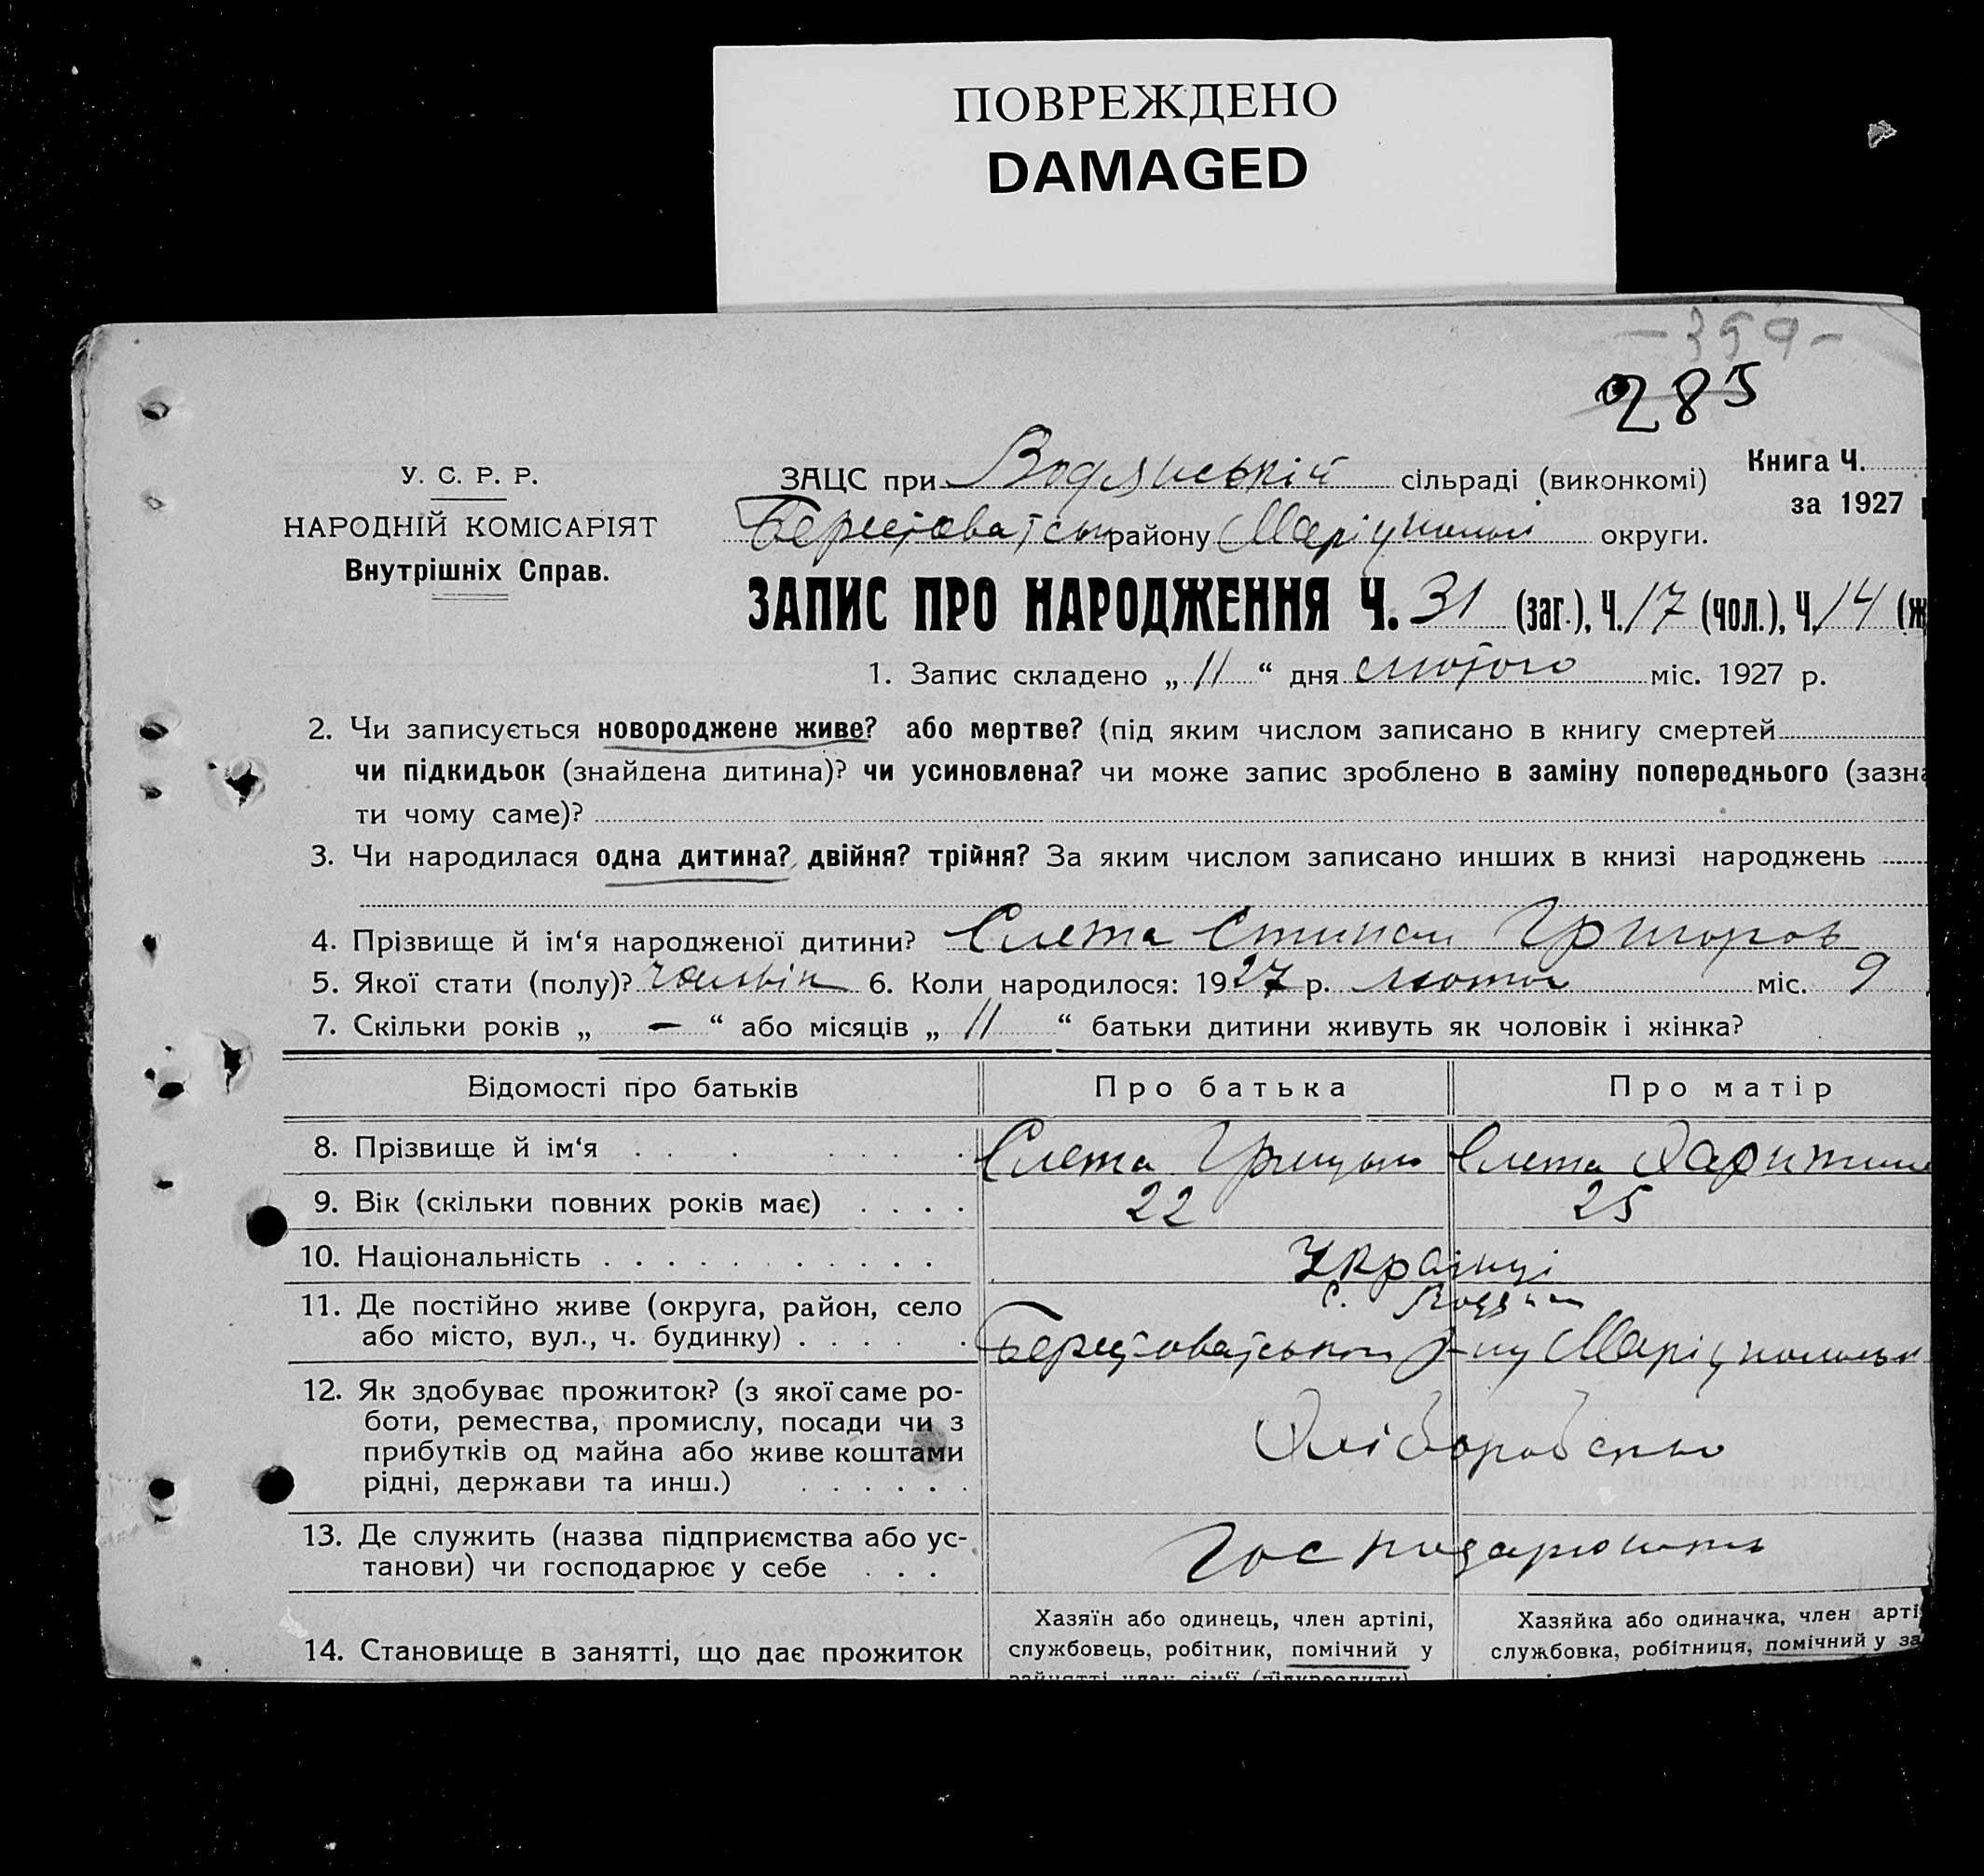 ПОВРЕЖДЕНО
DAMAGED
- 359 -
285
У. С. Р. Р.
НАРОДНІЙ КОМІСАРІЯТ
Внутрішніх Справ.
ЗАЦС при Водянській сільраді (виконкомі)
Книга Ч.
за 1927
району Маріупольськ округи.
ЗАПИС ПРО НАРОДЖЕННЯ Ч. 31 (заг.), Ч. 17 (чол.), Ч. 14 (ж
1. Запис складено „ 11 “ дня лютого міс. 1927 р.
2. Чи записується новороджене живе? або мертве? (під яким числом записано в книгу смертей
чи підкидьок (знайдена дитина)? чи усиновлена? чи може запис зроблено в заміну попереднього (зазна
ти чому саме)?
3. Чи народилася одна дитина? двійня? трійня? За яким числом записано инших в книзі народжень
4. Прізвище й ім‘я народженої дитини? Слета Степан Григоров
5. Якої стати (полу)? чоловік 6. Коли народилося: 1927 р. лютого міс. 9
7. Скільки років „ — “ або місяців „ 11 “ батьки дитини живуть як чоловік і жінка?
Відомості про батьків
Про батька
Про матір
8. Прізвище й ім‘я Слета Грицько Слета
9. Вік (скільки повних років має) 22 25
10. Національність Українці
11. Де постійно живе (округа, район, село
або місто, вул., ч. будинку)
с. Водяне
Берестоватськог р-ну Маріупольськ
12. Як здобуває прожиток? (з якої саме ро-
боти, ремества, промислу, посади чи з
прибутків од майна або живе коштами
рідні, держави та инш.)
Хліборобство
13. Де служить (назва підприємства або ус-
танови) чи господарює у себе
Господарюють
14. Становище в занятті, що дає прожиток
Хазяїн або одинець, член артілі,
службовець, робітник, помічний у
зайнятті член сім‘ї (підкреслити)
Хазяйка або одиначка, член арті
службовка, робітниця, помічний у за